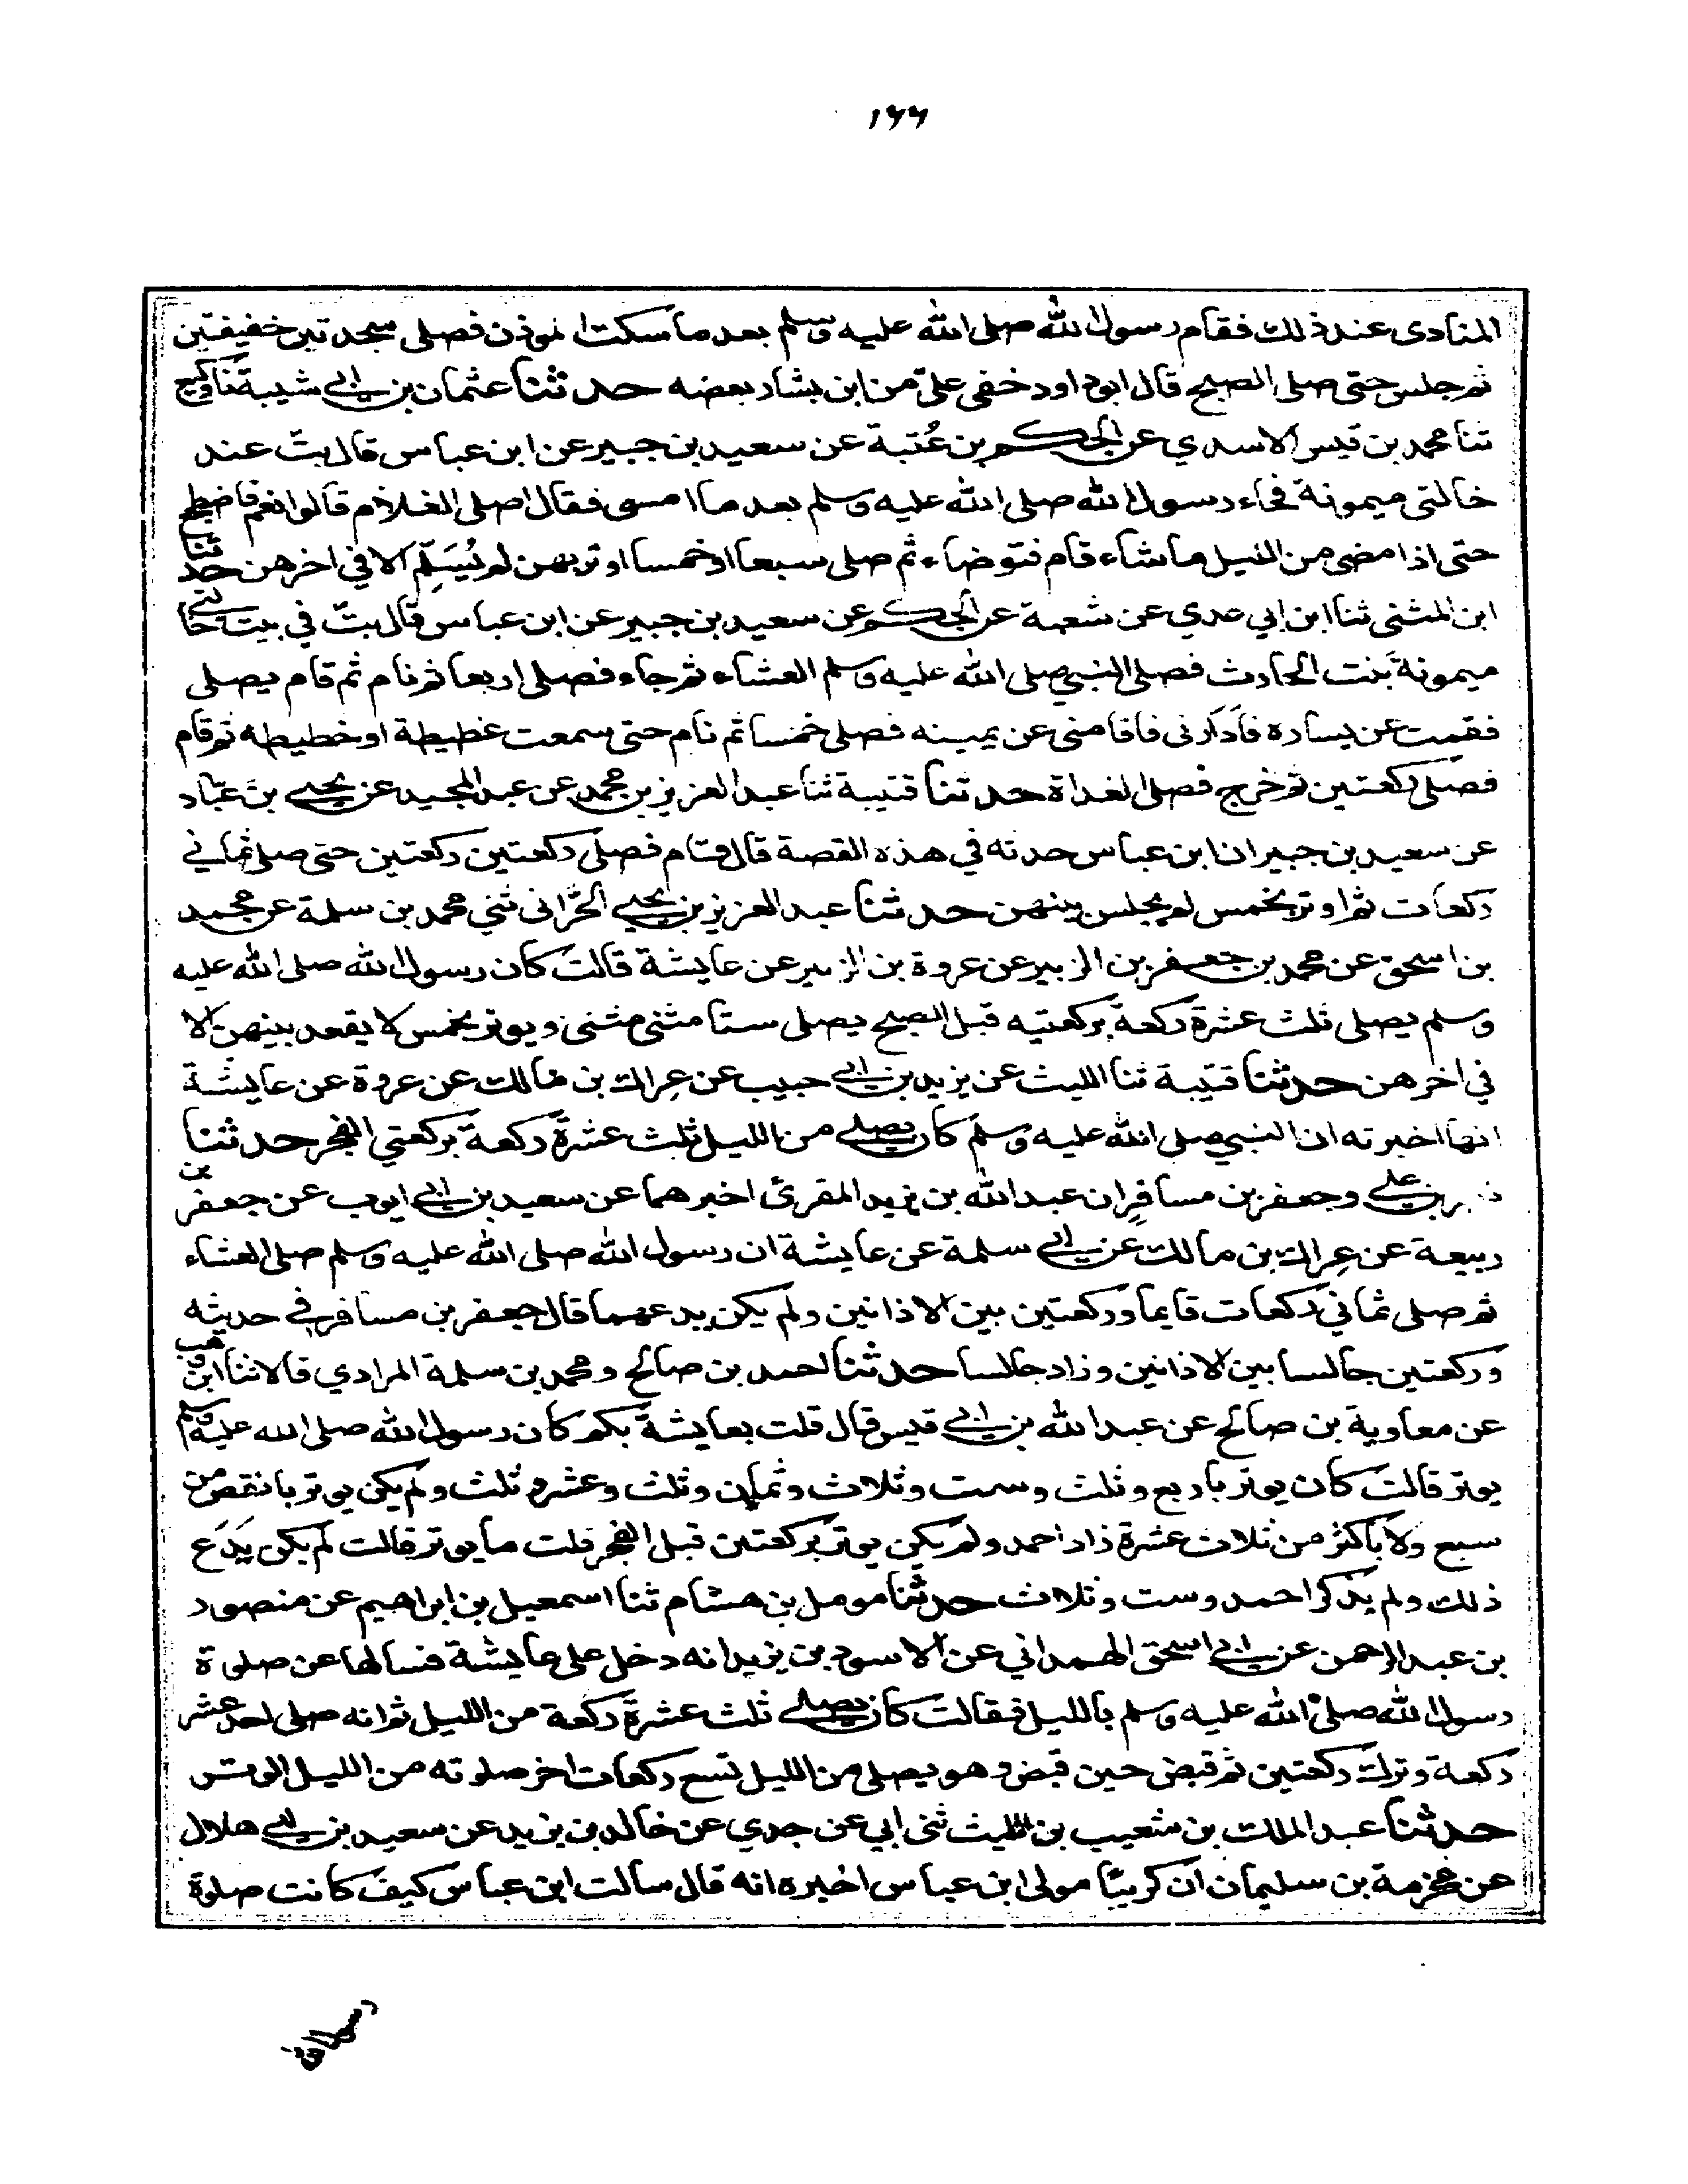 ١٦٦
المنادى عند ذلك فقام رسول الله صلى الله عليه وسلم بعد ما سكت المؤذن فصلى سجدتين خفيفتين
ثم جلس حتى صلى الصبح قال ابو داود خفى علىّ من ابن بشار بعضه حدثنا عثمان بن ابي شيبة ثنا وكيع
ثنا محمد بن قيس الاسدي عن الحكم بن عُتبة عن سعيد بن جبير عن ابن عباس قال بتّ عند
خالتى ميمونة فجاء رسول الله صلى الله عليه وسلم بعد ما امسى فقال اصلى الغلام قالوا نعم فاضطجع
حتى اذا مضى من الليل ما شاء قام فتوضاء ثم صلى سبعا او خمسا اوتر بهن لم يُسَلِّم الا في اخرهن حدثنا
ابن المثنى ثنا ابن ابي عدي عن شعبة عن الحكم عن سعيد بن جبير عن ابن عباس قال بتّ في بيت خالتي
ميمونة بنت الحارث فصلى النبي صلى الله عليه وسلم العشاء ثم جاء فصلى اربعا ثم نام ثم قام يصلى
فقمت عن يساره فادارنى فاقامنى عن يمينه فصلى خمسا ثم نام حتى سمعت غطيطة او خطيطه ثم قام
فصلى ركعتين ثم خرج فصلى الغداة حدثنا قتيبة ثنا عبد العزيز بن محمد عن عبد المجيد عن يحيى بن عبّاد
عن سعيد بن جبير ان ابن عباس حدثه في هذه القصة قال قام فصلى ركعتين ركعتين حتى صلى ثماني
ركعات ثم اوتر بخمس لم يجلس بينهن حدثنا عبد العزيز بن يحيى الحَّرانى ثني محمد بن سلمة عن محمد
بن اسحق عن محمد بن جعفر بن الزبير عن عروة بن الزبير عن عايشة قالت كان رسول الله صلى الله عليه
وسلم يصلى ثلث عشرة ركعة بركعتيه قبل الصبح يصلى ستا مثنى مثنى ويوتر بخمس لا يقعد بينهن الا
في اخرهن حدثنا قتيبة ثنا الليث عن يزيد بن ابي حبيب عن عِراك بن مالك عن عروة عن عايشة
انها اخبرته ان النبي صلى الله عليه وسلم كان يصلي من الليل ثلث عشرة ركعة بركعتي الفجر حدثنا
بن علي وجعفر بن مسافِر ان عبد الله بن يزيد المقرئ اخبرهما عن سعيد بن ابي ايوب عن جعفر بن
ربيعة عن عِراك بن مالك عن ابي سلمة عن عايشة ان رسول الله صلى الله عليه وسلم صلى العشاء
ثم صلى ثماني ركعات قايما وركعتين بين الاذانين ولم يكن يدعهما قال جعفر بن مسافر في حديثه
وركعتين جالسا بين الاذانين وزاد جالسا حدثنا احمد بن صالح ومحمد بن سلمة المرادي قالا ثنا ابن وهب
عن معاوية بن صالح عن عبد الله بن ابي قيس قال قلت بعايشة بكم كان رسول الله صلى الله عليه وسلم
يوتر قالت كان يوتر باربع وثلث وست وثلاث وثمان وثلث وعشر وثلث ولم يكن يوتر بانقص من
سبع ولا باكثر من ثلاث عشرة زاد احمد ولم يكن يوتر بركعتين قبل الفجر قلت ما يوتر قالت لم يكن يَدَع
ذلك ولم يذكر احمد وست وثلاث حدثنا مومل بن هشام ثنا اسمعيل بن ابراهيم عن منصور
بن عبد الرحمن عن ابي اسحق الهمداني عن الاسود بن يزيد انه دخل على عايشة فسالها عن صلوة
رسول الله صلى الله عليه وسلم بالليل فقالت كان يصلي ثلث عشرة ركعة من الليل ثم انه صلى احد عشر
ركعة وترك ركعتين ثم قبض حين قبض وهو يصلى من الليل تسع ركعات اخر صلوته من الليل الوتر
حدثنا عبد الملك بن شعيب بن الليث ثنى ابي عن جدي عن خالد بن يزيد عن سعيد بن ابي هلال
عن مخرمة بن سليمان ان كريبًا مولى ابن عباس اخبره انه قال سالت ابن عباس كيف كانت صلوة